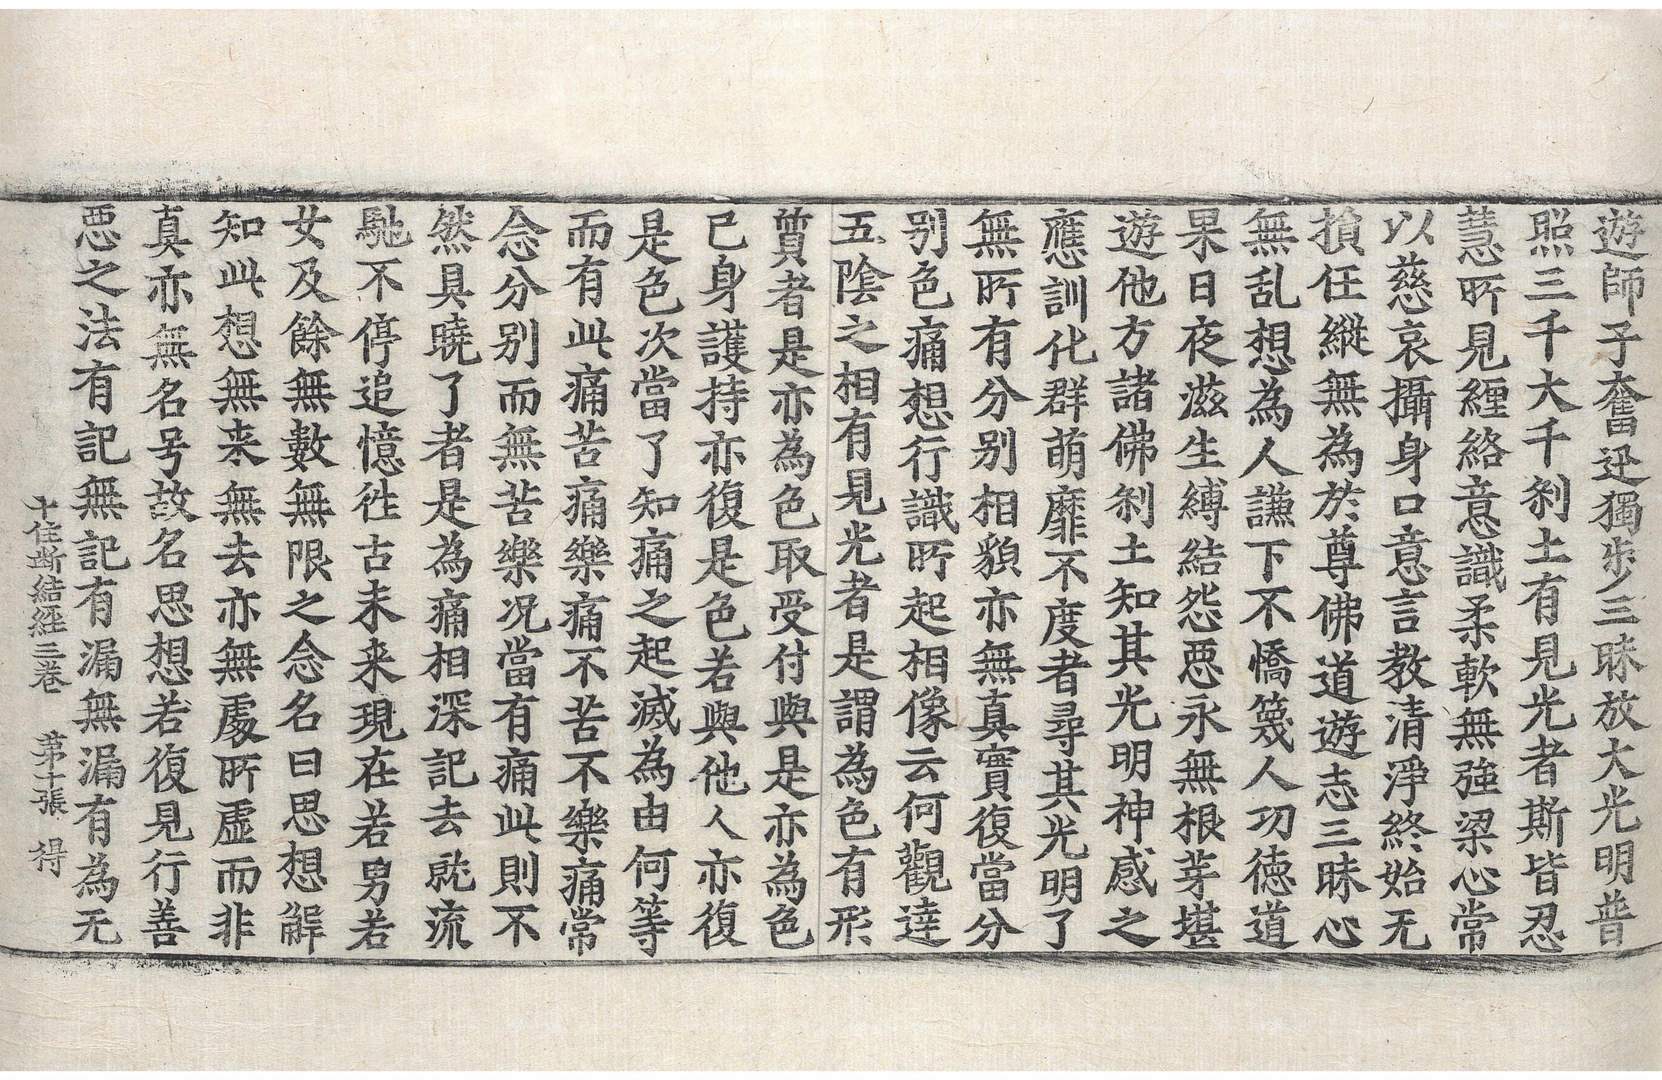 遊師子奮迅獨步三昧放大光明普
照三千大千刹土有見光者斯皆忍
慧所見纏絡意識柔軟無強梁心常
以慈哀攝身口意言教清淨終始无
損任縱無為於尊佛道遊志三昧心
無乱想為人謙下不憍篾人功德道
果日夜滋生縛結怨惡永無根芽堪
遊他方諸佛刹土知其光明神感之
應訓化群萌靡不度者尋其光明了
無所有分别相貌亦無真實復當分
别色痛想行識所起相像云何觀達
五陰之相有見光者是謂為色有形
質者是亦為色取受付與是亦為色
已身護持亦復是色若與他人亦復
是色次當了知痛之起滅為由何等
而有此痛苦痛樂痛不苦不樂痛常
念分别而無苦樂况當有痛此則不
然具曉了者是為痛相深記去就流
馳不停追憶徃古未来現在若男若
女及餘無數無限之念名曰思想解
知此想無来無去亦無處所虛而非
真亦無名号故名思想若復見行善
惡之法有記無記有漏無漏有為无
十住断結經三卷　第十張　得